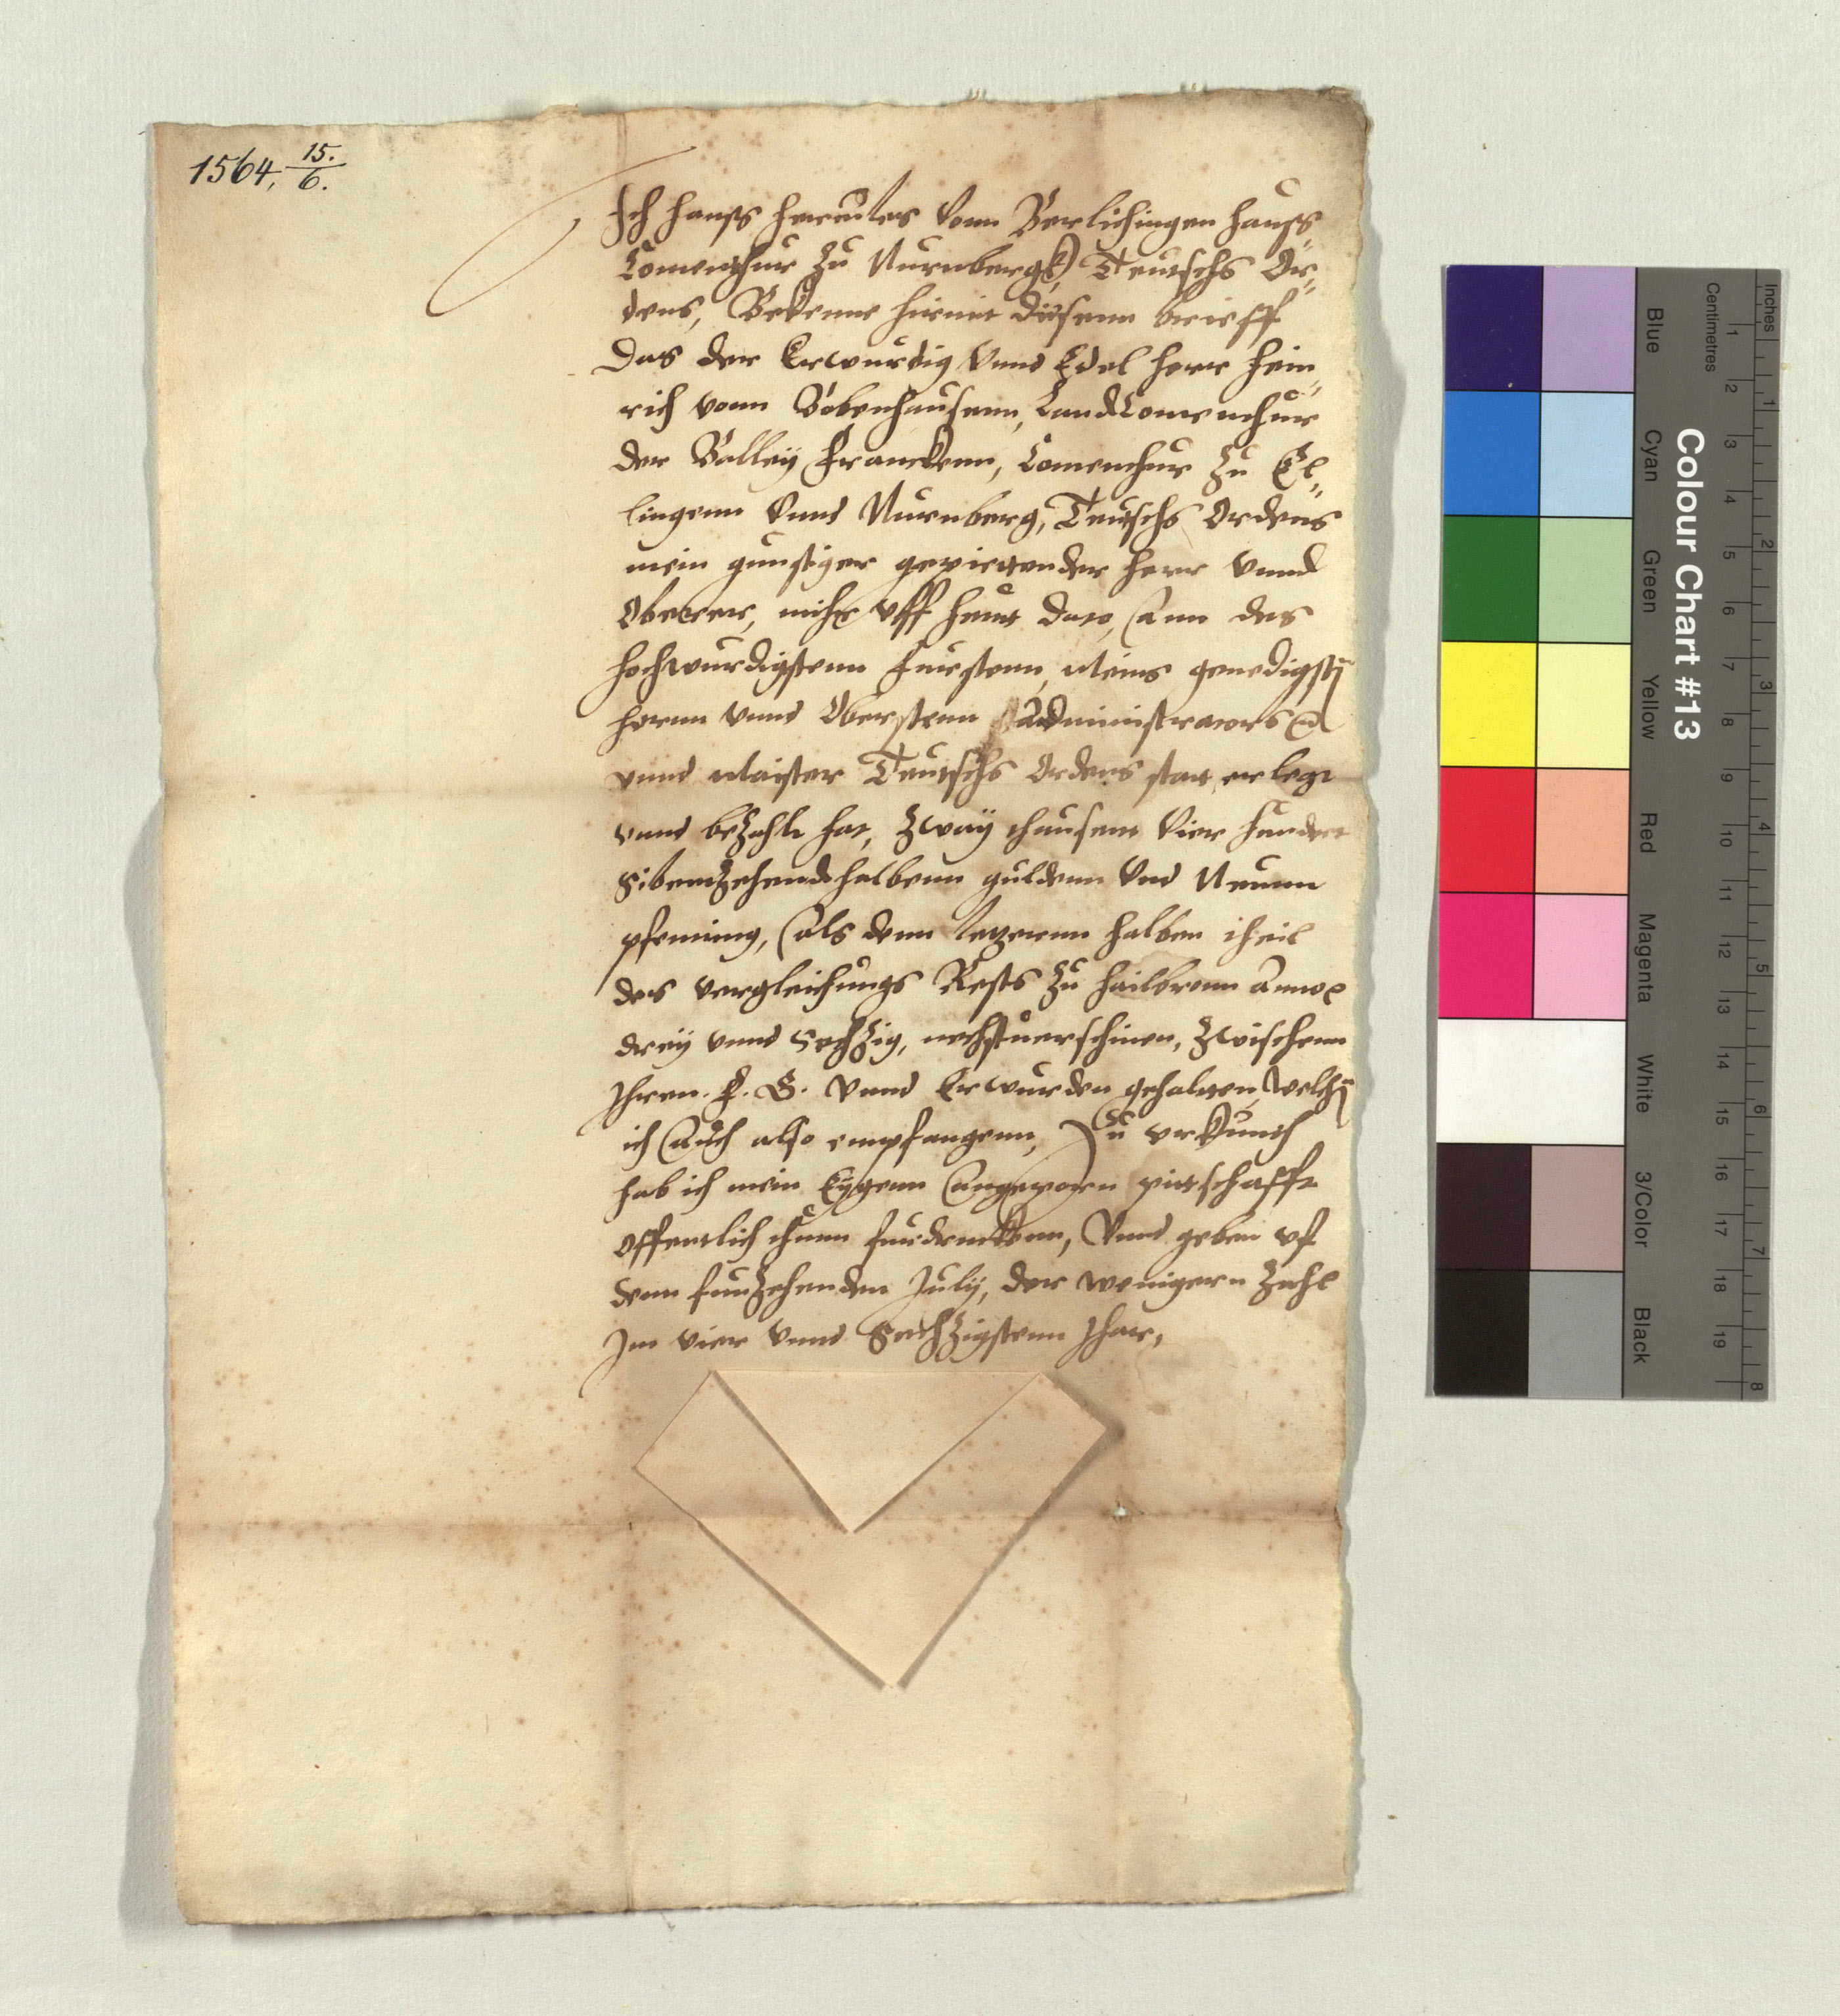 1564, 15./6.
Ich Hanss Hercules vonn Berlichingen Hauss
Comenthur zu Nurnbergk Teutschs Or„
dens, Bekenne hiemit disenn brieff
Das der Erwurdig vnnd Edel Herr Hein„
rich vonn Bobenhausenn, LandComenthur
der Balley Franckenn, Comenthur zu El„
lingenn vnnd Nurnberg, Teutschs Ordens
mein gunstiger gepiettender Herr vnnd
Oberer, mihr vff heut dato, Ann des
hochwurdigstenn Furstenn, Meins genedigstn
herrn vnnd Oberstenn Administrators
vnnd Maister Teutschs Ordens stat, erlegt
vnnd bezahlt hat, Zway thausent Vier hundert
Sibentzehendthalbenn guldenn vnd Neunn
pfenning, Als denn letzerenn halben theil
des vergleichungs Rests zu Hailbronn Anno
drey vnnd Sechzig, nechstuerschinen, zwischenn
Ihren. F. G. vnnd Erwurden gehalten, Welchs
ich Auch also empfangenn, Zu vrkunth
hab ich mein Eygenn Angeporn pittschafft
offentlich thun furdruckenn, Vnnd geben vf
denn funfzehenden July, der wenigern Zahl
Im vier vnnd Sechzigstenn Jhar,
Colour Chart #13
Blue
Cyan
Green
Yellow
Red
Magenta
White
3/Color
Black
Centimetres
1 2 3 4 5 6 7 8 9 10 11 12 13 14 15 16 17 18 19
Inches
1 2 3 4 5 6 7 8